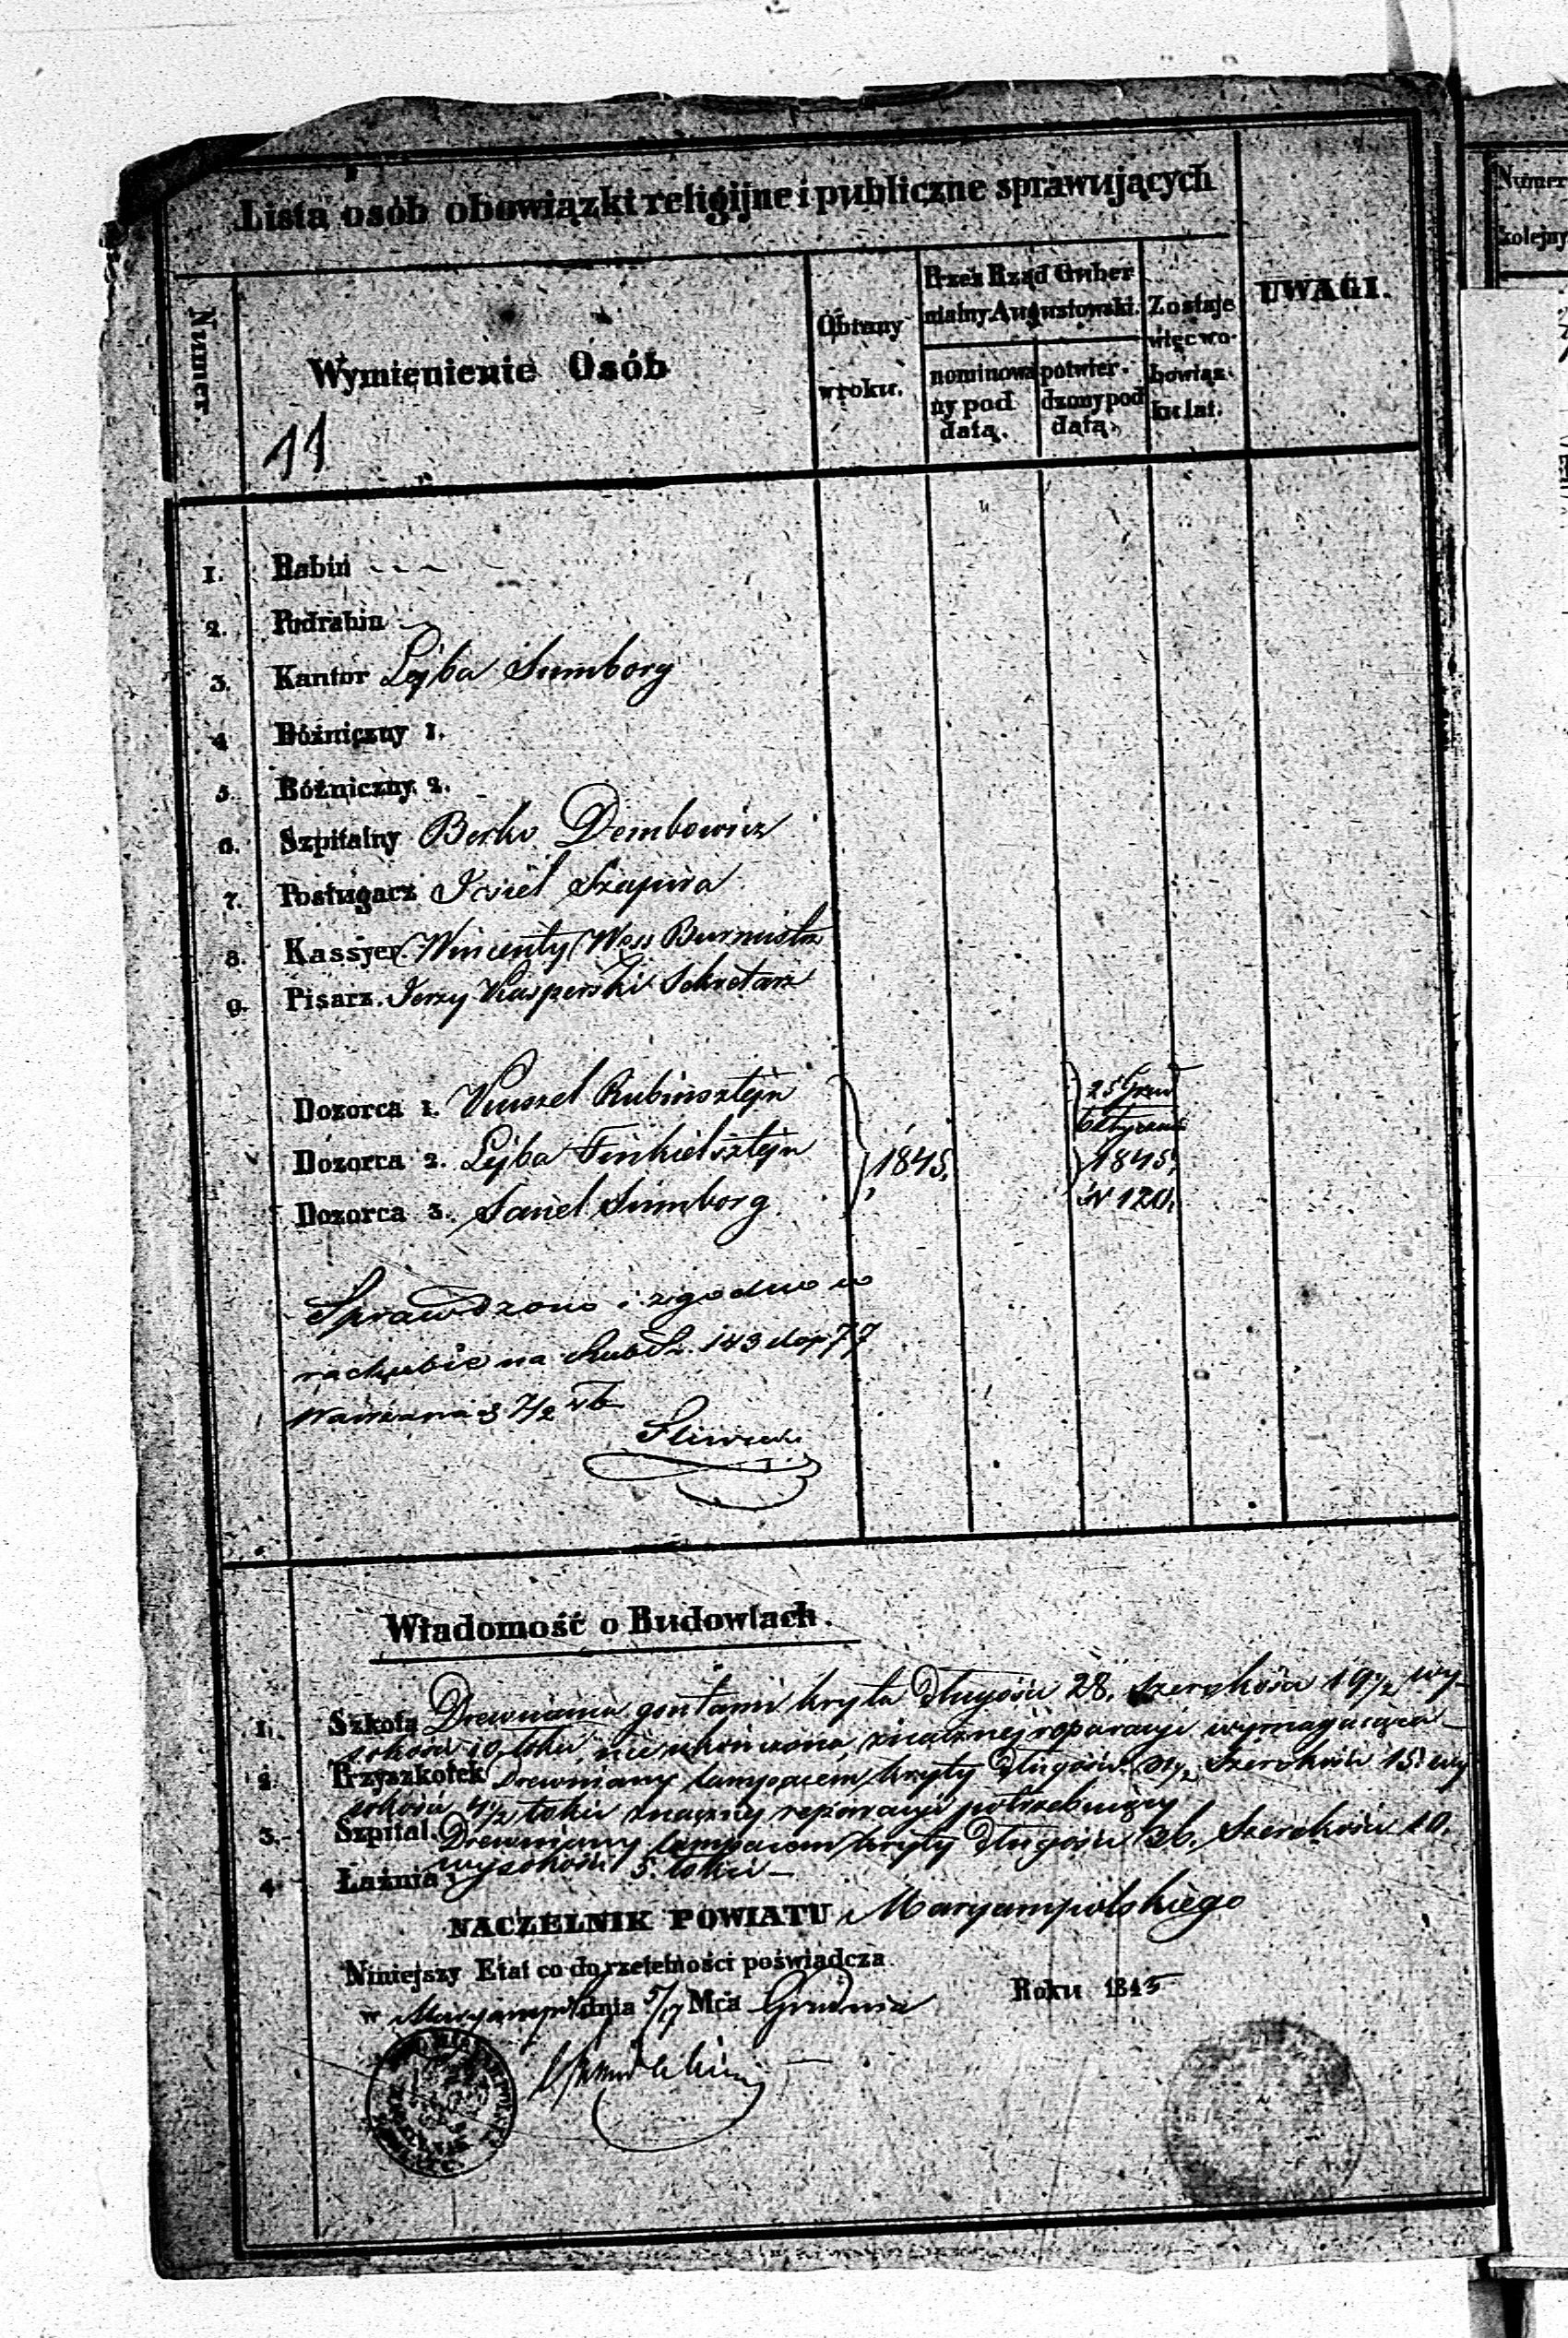 Lista osób obowiązki religijne i publiczne sprawujących
Numer
Wymienienie Osób
Obrany
w roku.
Przez Rząd Guber
nialny Augustowski.
nominowa
ny pod
datą.
potwier-
dzony pod
datą.
Zostaje
więc w o-
bowiąz-
ku lat.
UWAGI.
11
1. Rabin
2. Podrabin
3. Kantor Lejba Sumborg
4 Bóżniczny 1.
5. Bóżniczny 2.
6. Szpitalny Berko Dembowicz
7. Posługacz Szapira
8. Kassyer Wincenty Woss Burmistrz
9. Pisarz. Jerzy Kasperski Sekretarz
Dozorca 1. Rubinsztejn
Dozorca 2. Lejba Finkielsztejn
Dozorca 3. Sumborg
1845.
25 Grud
6 Stycznia
1845.
N 120.
Sprawdzono i zgodno w
rachubie na 143 kop 77
Warszawa
Wiadomość o Budowlach.
1. Szkoła Drewniana gontami kryta długości 28. szerokości 19 1/2 wy-
sokości 10 łokci, nie ukończona, znacznej reparacyi wymagająca
2. Przyszkołek Drewniany kryty długości szerokości 15. wy
sokości 4 1/2 łokci znacznej reparacyi potrzebujący
3. Szpital. Drewniany kryty długości 26. szerokości 10.
wysokości 5. łokci
4. Łaźnia
NACZELNIK POWIATU Maryampolskiego
Niniejszy Etat co do rzetelności poświadcza
w Maryampolu dnia 5/17 Mca Grudnia Roku 1845
Numer
kolejny